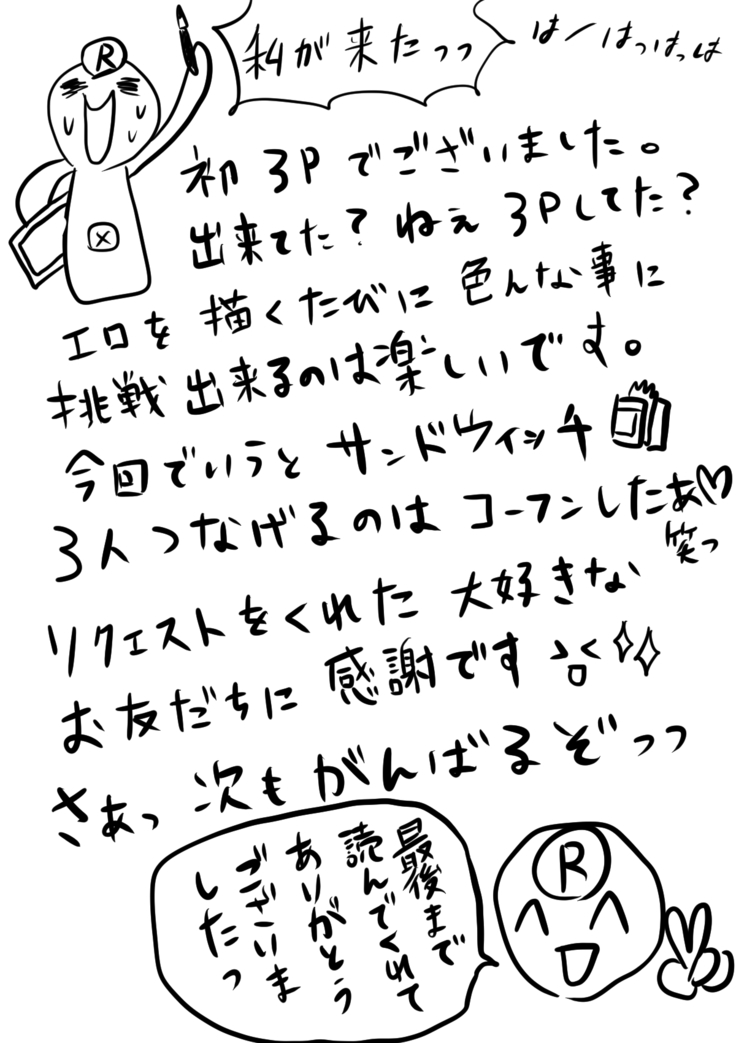 R
私が来たっっ
はーはっはっは
初3Pでございました。
出来てた?ねぇ3Pしてた?
エロを描くたびに色んな事に
挑戦出来るのは楽しいです。
今回でいうとサンドウィッチ
3人つなげるのはコーフンしたぁ♡
笑っ
リクエストをくれた大好きな
お友だちに感謝です
さあっ次もがんばるぞっっ
R
最後まで
読んでくれて
ありがとう
ございま
したっ